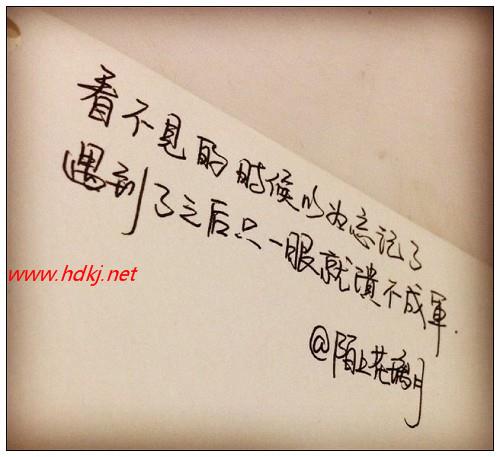 看不見的时候以为忘记了
遇到了之后只一眼就溃不成軍.
www.hdkj.net
@陌上花璃月